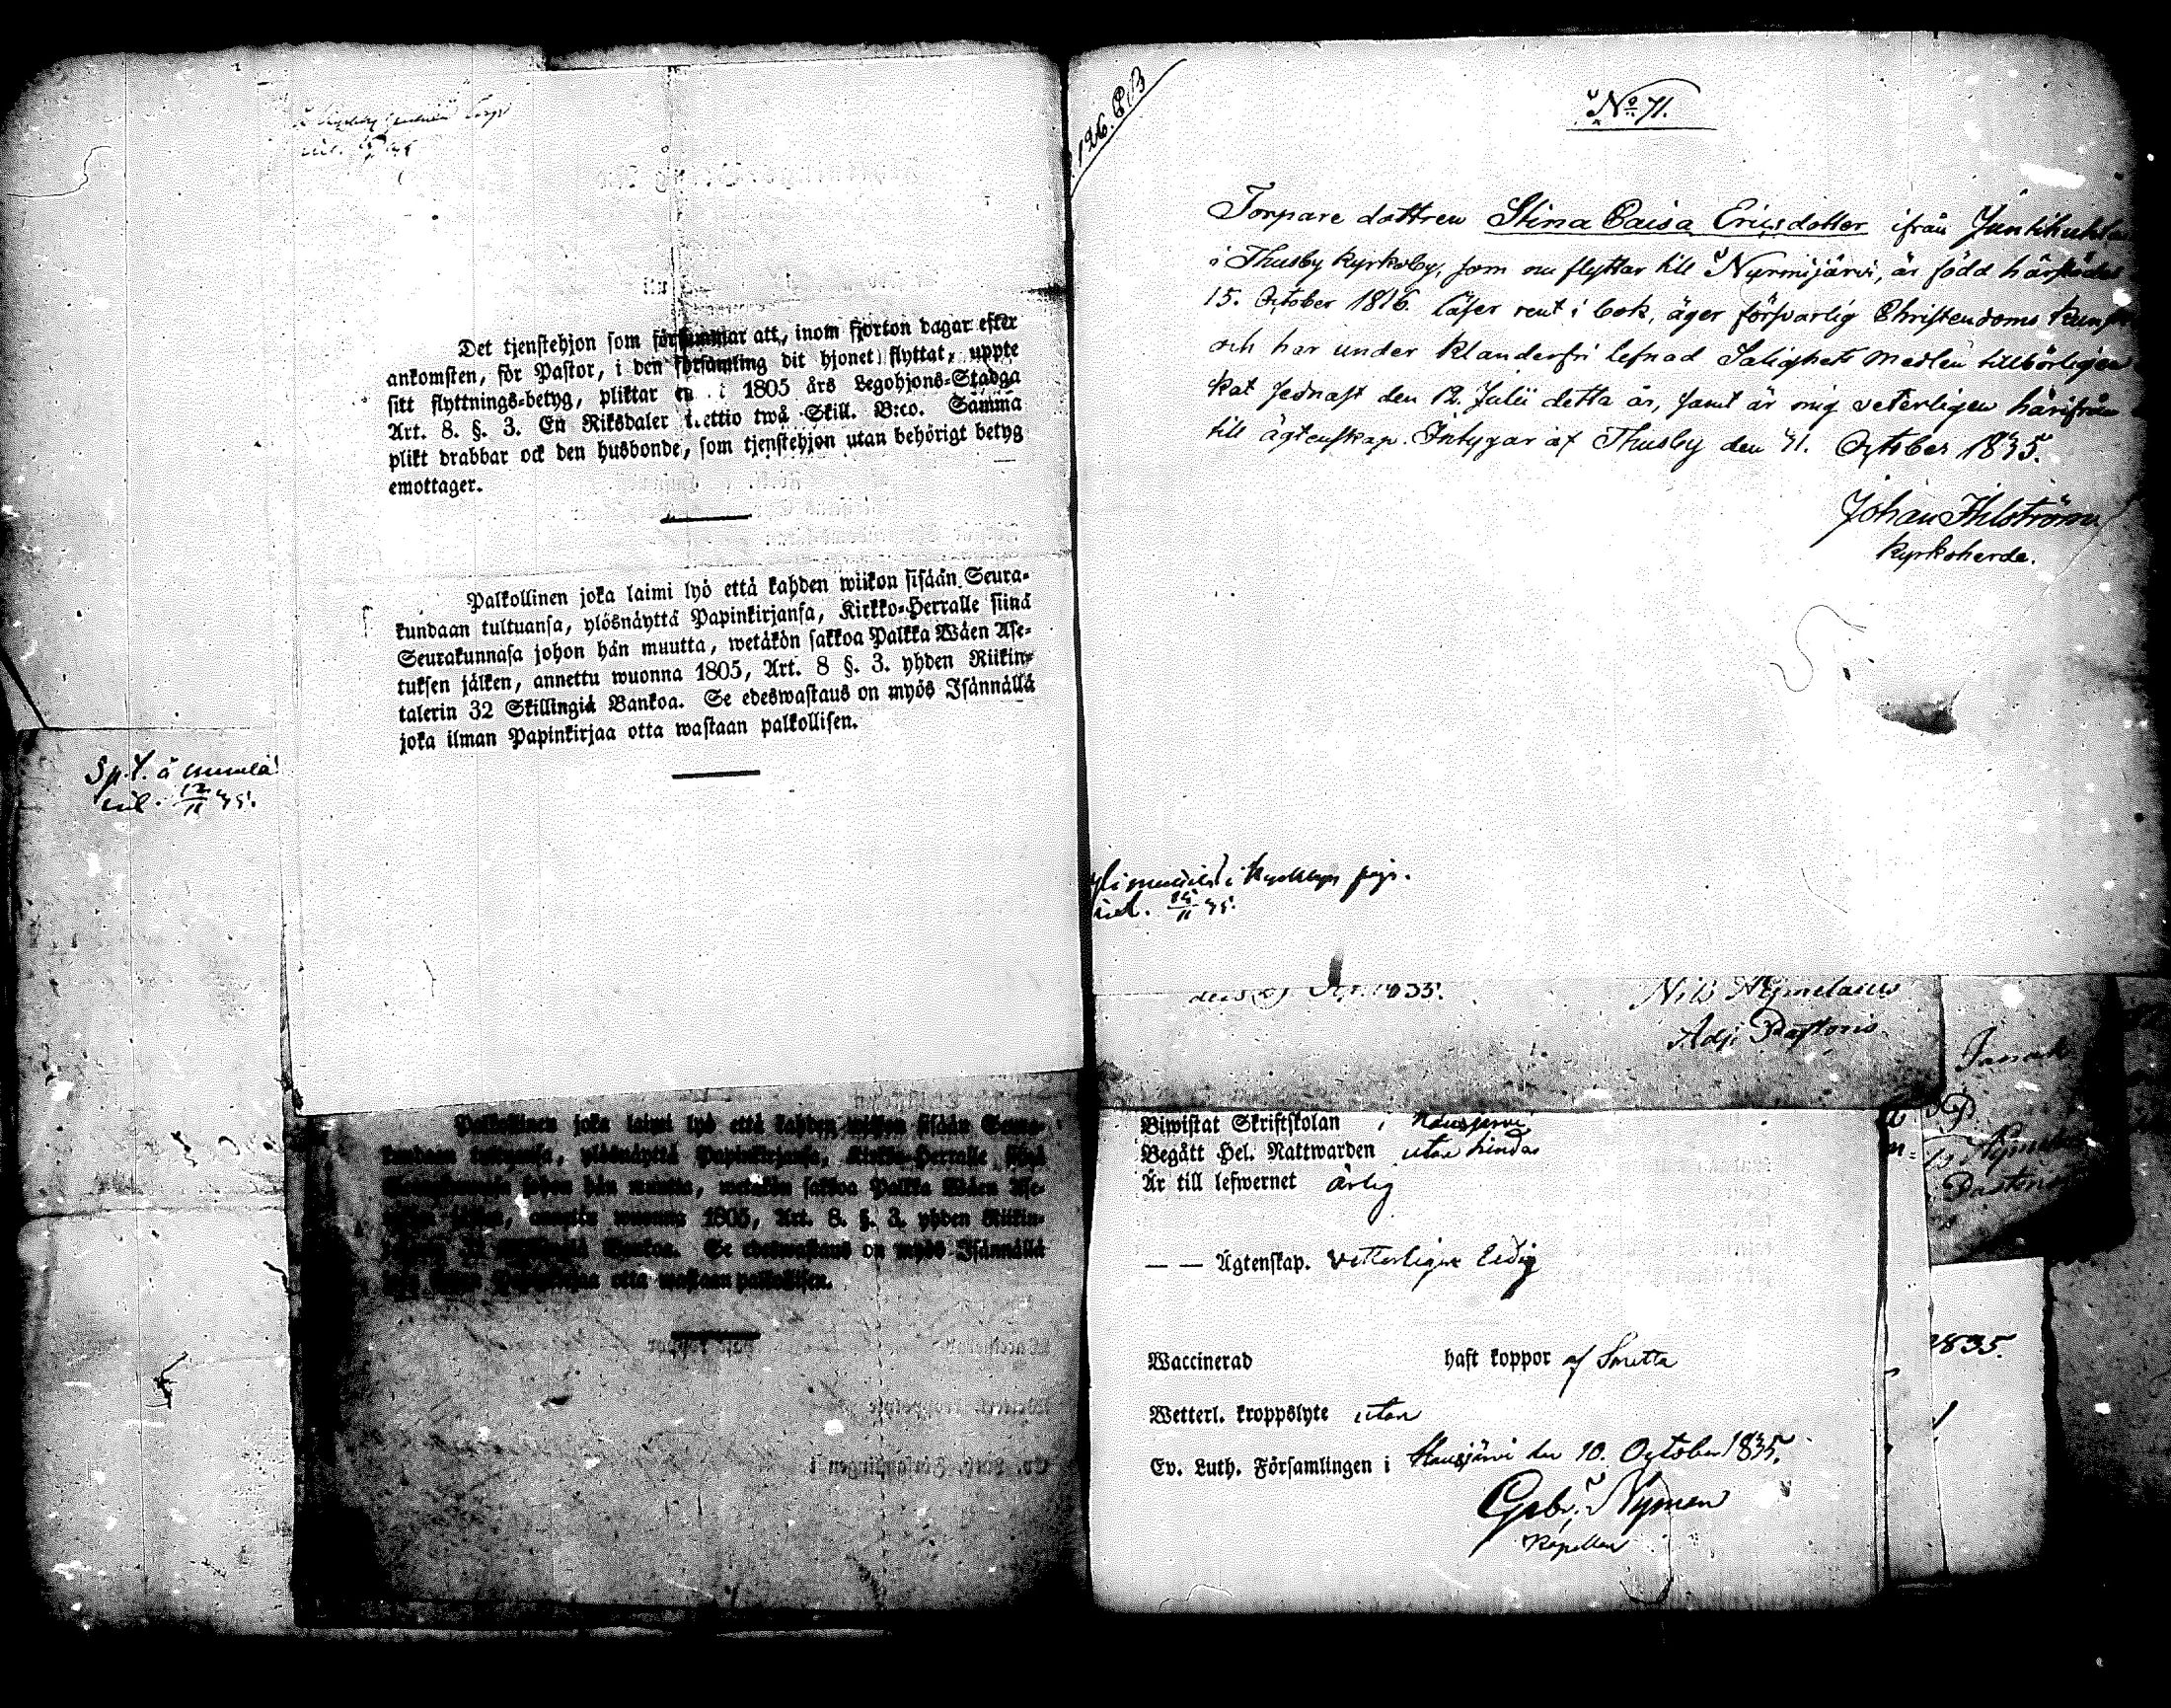 Det tjenstehjon som försummar att, inom fjorton dagar efter
ankomsten, för Pastor, i den församling dit hjonet flyttat, uppte
sitt flyttnings-betyg, pliktar i 1805 års Legohjons-Stadga
Art. 8. §. 3. En Riksdaler trettio twå Skill. B:co. Samma
plikt drabbar ock den husbonde, som tjenstehjon utan behörigt betyg
emottager.
Palkollinen joka laimi lyö että kahden wiikon sisään Seura-
kundaan tultuansa, ylösnäyttä Papinkirjansa, Kirkko-Herralle siinä
Seurakunnasa johon hän muutta, wetäkön sakkoa Palkka Wäen Ase-
tuksen jälken, annettu wuonna 1805, Art. 8 §. 3. yhden Riikin-
talerin 32 Skillingiä Bankoa. Se edeswastaus on myös Isännällä
joka ilman Papinkirjaa otta wastaan palkollisen.
Palkollinen joka laimi lyö että kahden wiikon sisään Seura-
kundaan tultuansa, ylösnäyttä Papinkirjansa, Kirkko-Herralle siinä
johon hän muutta, wetäkön sakkoa Palkka Wäen Ase-
wuonna 1805, Art. 8. §. 3. yhden Riikin-
Bankoa. Se edeswastaus on myös Isännällä
Papinkirjaa otta wastaan palkollisen.
126.
No 71.
Torpare dottren Stina Caisa Ericsdotter ifrån
i Thusby kyrkoby, som nu flyttar till Nurmijärvi, är född härstädes
15. October 1816. läser rent i bok, äger försvarlig Christendoms
och har under klanderfri lefnad Salighets medlen tillbörligen
kat sednast den 12. Julii detta år, samt är mig veterligen härifrån
till ägtenskap. Intygar af Thusby den 31. October 1835.
Johan Ihlström
Kyrkoherde.
1835.
Nils Nymelaeus
Adj: Pastoris
Biwistat Skriftskolan i Hausjervi
Begått Hel. Nattwarden utan hinder
Är till lefwernet ärlig
— — Ägtenskap. Vetterligen ledig
Waccinerad haft koppor af Smitta
Wetterl. kroppslyte utan
Ev. Luth. Församlingen i Hausjärvi den 10. October 1835.
Gabr. Nyman
Kapellan
1835.